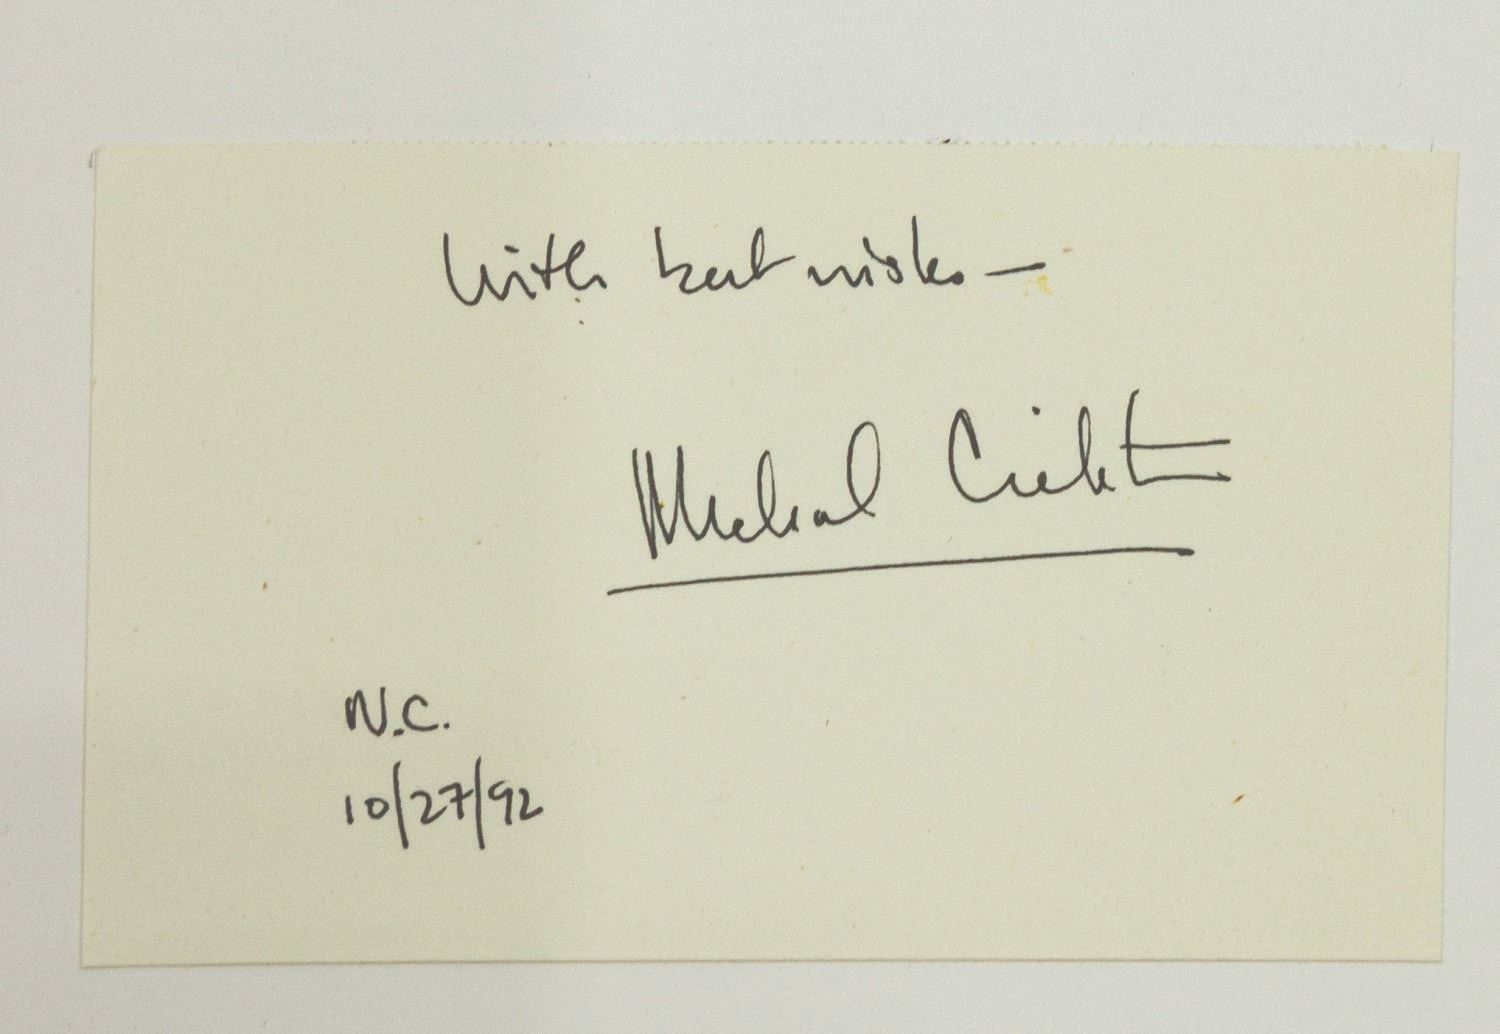 With best wishes —
Michael Crichton
N.C.
10/27/92